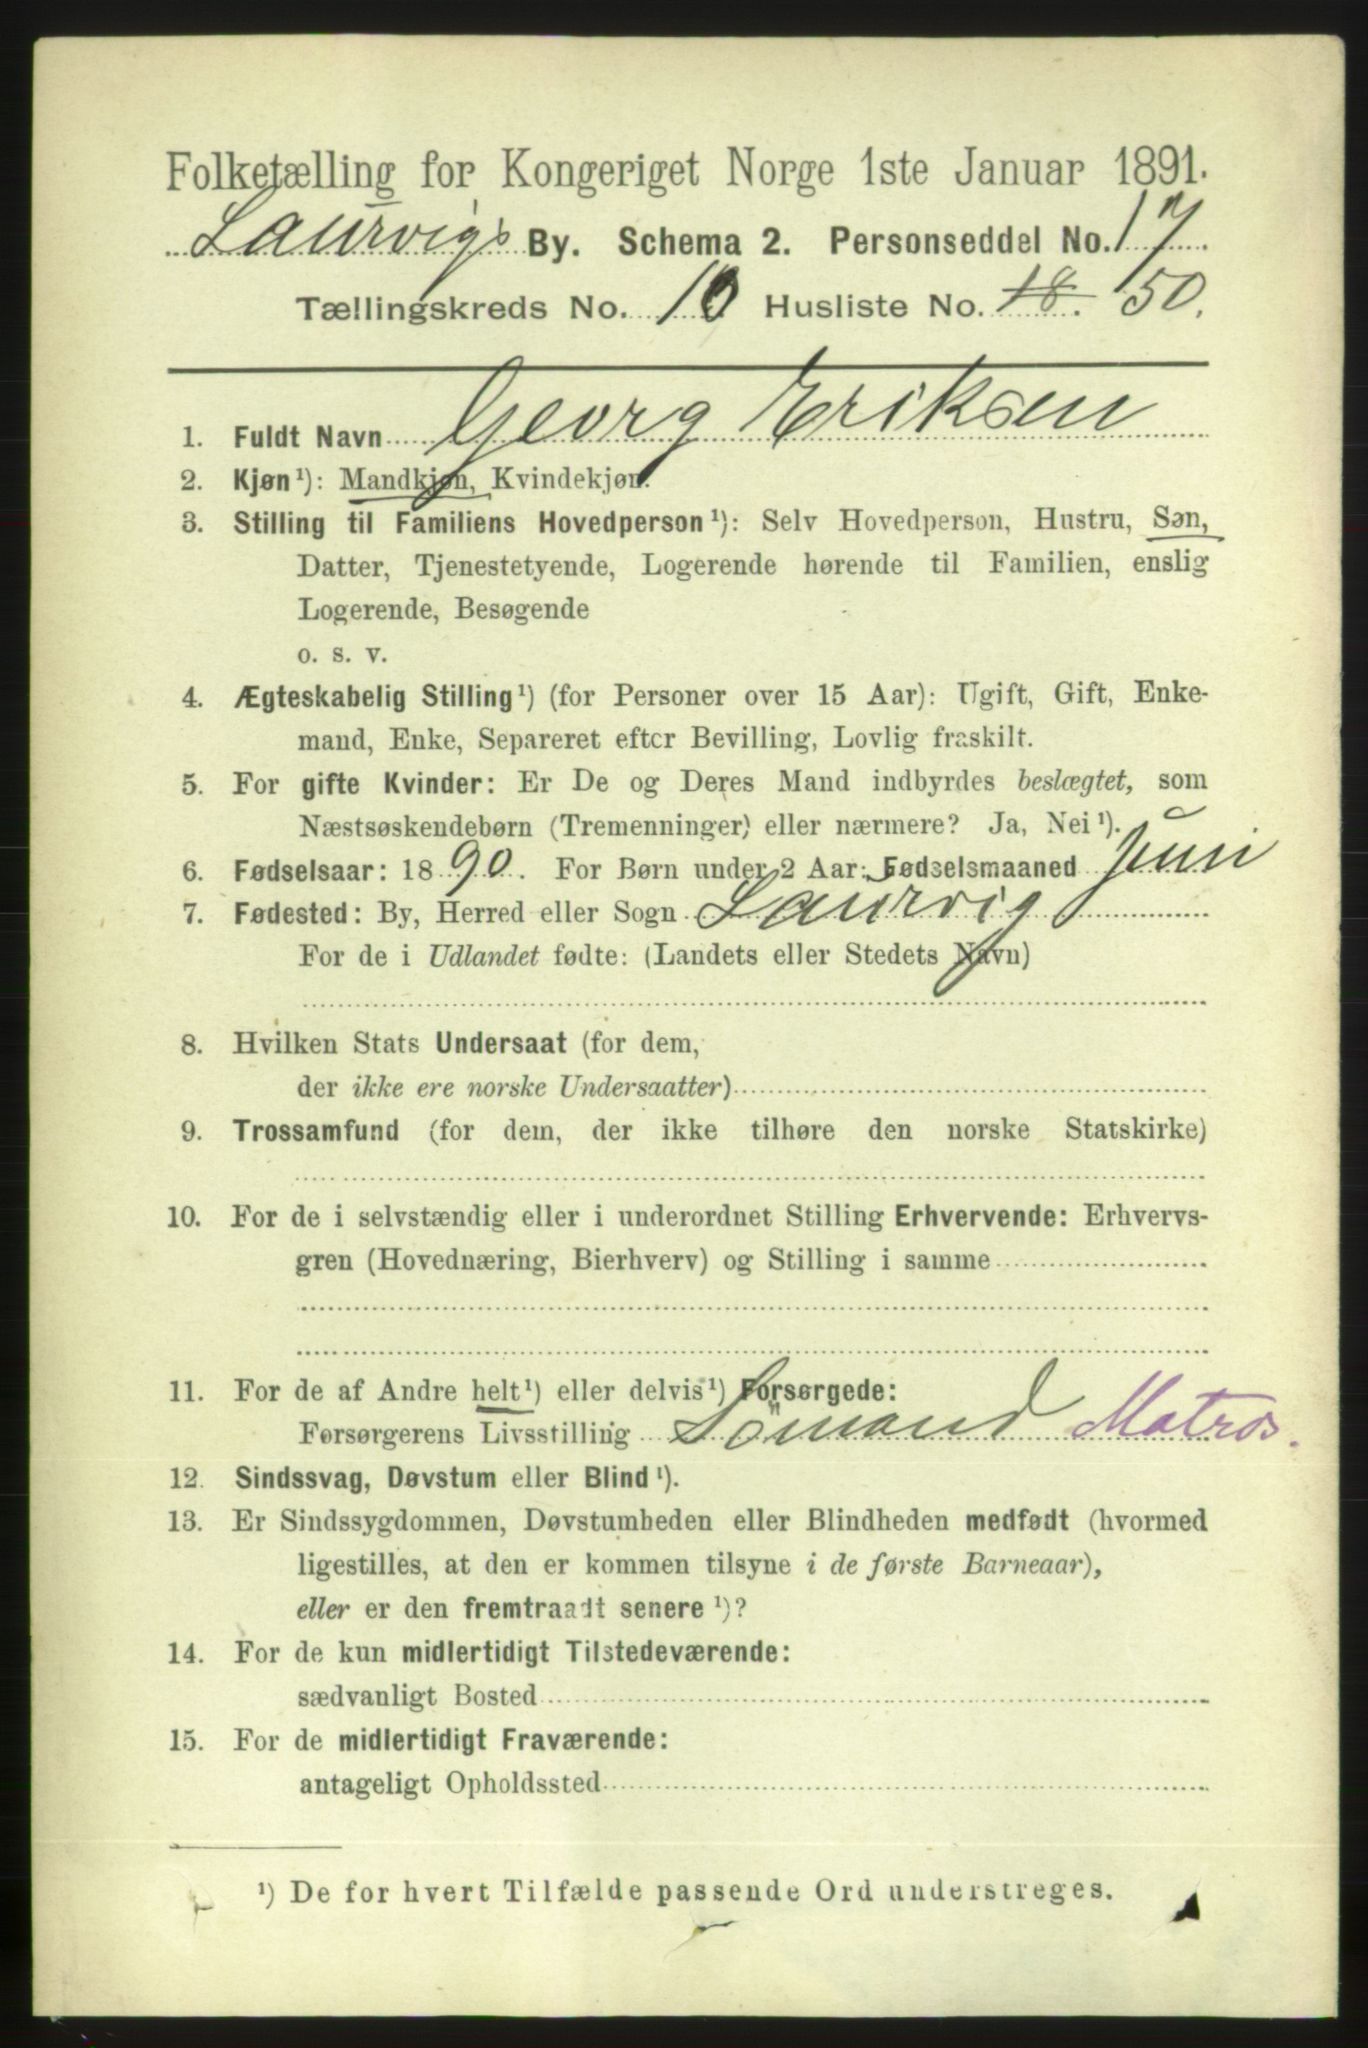 Folketælling for Kongeriget Norge 1ste Januar 1891.
Laurvigs By. Schema 2. Personseddel No. 17
Tællingskreds No. 10 Husliste No. 18. 50.
1. Fuldt Navn Georg Eriksen
2. Kjøn¹): Mandkjøn, Kvindekjøn.
3. Stilling til Familiens Hovedperson¹): Selv Hovedperson, Hustru, Søn,
Datter, Tjenestetyende, Logerende hørende til Familien, enslig
Logerende, Besøgende
o. s. v.
4. Ægteskabelig Stilling¹) (for Personer over 15 Aar): Ugift, Gift, Enke-
mand, Enke, Separeret efter Bevilling, Lovlig fraskilt.
5. For gifte Kvinder: Er De og Deres Mand indbyrdes beslægtet, som
Næstsøskendebørn (Tremenninger) eller nærmere? Ja, Nei¹).
6. Fødselsaar: 1890. For Børn under 2 Aar: Fødselsmaaned Juni
7. Fødested: By, Herred eller Sogn Laurvig
For de i Udlandet fødte: (Landets eller Stedets Navn)
8. Hvilken Stats Undersaat (for dem,
der ikke ere norske Undersaatter)
9. Trossamfund (for dem, der ikke tilhøre den norske Statskirke)
10. For de i selvstændig eller i underordnet Stilling Erhvervende: Erhvervs-
gren (Hovednæring, Bierhverv) og Stilling i samme
11. For de af Andre helt¹) eller delvis¹) Forsørgede:
Forsørgerens Livsstilling Sömand Matros.
12. Sindssvag, Døvstum eller Blind¹).
13. Er Sindssygdommen, Døvstumheden eller Blindheden medfødt (hvormed
ligestilles, at den er kommen tilsyne i de første Barneaar),
eller er den fremtraadt senere¹)?
14. For de kun midlertidigt Tilstedeværende:
sædvanligt Bosted
15. For de midlertidigt Fraværende:
antageligt Opholdssted
¹) De for hvert Tilfælde passende Ord understreges.